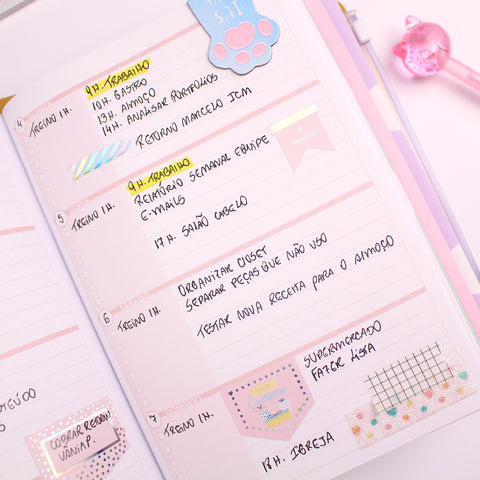 4
TREINO 1H.
9H. TRABALHO
10H. GASTRO
13H. ALMOÇO
14H. ANALISAR PORTFÓLIOS
RETORNO MARCELO JCM
5
TREINO 1H.
9H. TRABALHO
RELATÓRIO SEMANAL EQUIPE
E-MAILS
17H. SALÃO CABELO
SÁBADO
6
TREINO 1H.
ORGANIZAR CLOSET
SEPARAR PEÇAS QUE NÃO USO
TESTAR NOVA RECEITA PARA O ALMOÇO
DOMINGO
7
TREINO 1H.
SUPERMERCADO
FAZER LISTA
18H. IGREJA
COBRAR
VANIA P.